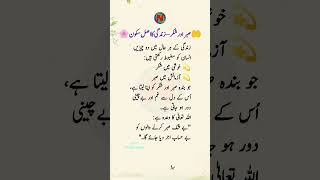 🤲 صبر اور شکر—زندگی کا اصل سکون 🌸
زندگی کے ہر حال میں دو چیزیں
انسان کو مضبوط رکھتی ہیں:
💫 خوشی میں شکر
💫 آزمائش میں صبر
جو بندہ صبر اور شکر کو اپنا لیتا ہے،
اُس کے دل سے غم اور بے چینی
دور ہو جاتی ہے۔
اللہ تعالیٰ کا وعدہ ہے:
"بے شک صبر کرنے والوں کو
بے حساب اجر دیا جائے گا۔"